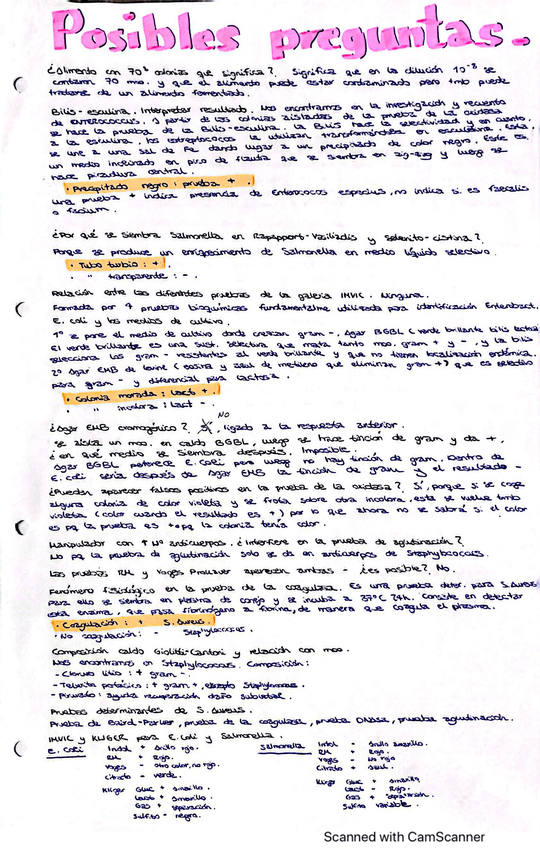 Posibles preguntas.
¿Alimento con 70⁸ colonias que significa?. Significa que en la dilución 10⁻⁸ se
contaron 70 moo. y que el alimento puede estar contaminado pero tmb puede
tratarse de un alimento fomentado.
Bilis-esculina. Interpretar resultado. Nos encontramos en la investigación y recuento
de enterococcus. A partir de las colonias aisladas de la prueba de la oxidasa
se hace la prueba de la Bilis-esculina. La Bilis hace la selectividad y en cuanto
a la esculina, los estreptococos la utilizan transformándola en esculetina, esta
se une a una sal de Fe dando lugar a un precipitado de color negro. Este es
un medio inclinado en pico de flauta que se siembra en zig-zag y luego se
hace picadura central.
· Precipitado negro: prueba +.
Una prueba + indica presencia de Enterococos especius, no indica si es faecalis
o facium.
¿Por qué se siembra Salmonella en Rapapport-Vasiliadis y selenito-cistina?.
Porque se produce un enriquecimiento de Salmonella en medio líquido selectivo.
· Tubo turbio: +.
· " transparente: -.
Relación entre las diferentes pruebas de la galeria IMVIC. Ninguna.
Formada por 4 pruebas bioquímicas fundamentalme utilizada para identificación Enterobact.
E. coli y los medios de cultivo.
1º se pone el medio de cultivo donde crezcan gram -. Agar BGBL (verde brillante bilis lactosa
El verde brillante es una sust. selectiva que mata tanto moo. gram + y - y la bilis
selecciona los gram - resistentes al verde brillante y que no tienen localización endémica.
2º Agar EMB de Levine (eosina y azul de metileno que eliminan gram +) que es selectivo
para gram - y diferencial para lactosa.
· Colonia morada: Lact +.
· " incolora: Lact -.
¿Agar EMB cromogénico?. NO, ligado a la respuesta anterior.
Se aísla un moo. en caldo BGBL, luego se hace tinción de gram y da +,
¿en qué medio se siembra después. Imposible.
Agar BGBL potencie E. coli pero luego no hay tinción de gram. Dentro de
E. coli sería después de Agar EMB la tinción de gram y el resultado -
¿Pueden aparecer falsos positivos en la prueba de la oxidasa?. Sí, porque si se coge
alguna colonia de color violeta y se frota sobre otra incolora, esta se vuelve tmb
violeta (color cuando el resultado es +) por lo que ahora no se sabrá si el color
es pq la prueba es + o pq la colonia tenía color.
Manipulador con ↑ Nº anticuerpos. ¿Interfiere en la prueba de aglutinación?.
No pq la prueba de aglutinación solo se da en anticuerpos de Staphylococcus.
Las pruebas RM y Voges Prouskauer aparecen ambas - ¿es posible?. No.
Fenómeno fisiológico en la prueba de la coagulasa. Es una prueba deter. para S. Aureus
para ello se siembra en plasma de conejo y se incuba a 37ºC 24h. Consiste en detectar
esta enzima, que pasa fibrinógeno a fibrina, de manera que coagula el plasma.
· Coagulación: + S. Aureus.
· No coagulación: - Staphylococcus.
Composición caldo Giolitti-Cantoni y relación con moo.
Nos encontramos en Staphylococcus. Composición:
- Cloruro litio: + gram -.
- Telurito potásico: + gram +, excepto Staphylococcus.
- Piruvato: ayuda recuperación daño subletal.
Pruebas determinantes de S. Aureus.
Prueba de Baird-Parker, prueba de la coagulasa, prueba DNasa, prueba aglutinación.
IMVIC y KLIGER para E. Coli y Salmonella.
E. Coli Indol + Anillo rojo. Salmonella Indol - Anillo amarillo.
RM + Rojo. RM + Rojo.
Voges - otro color, no rojo. Voges - No rojo
Citrato - verde. Citrato + azul.
Kliger Gluc + amarillo. Kliger Gluc + amarillo
Lact + amarillo. Lact - Rojo.
Gas + separación. Gas + separación.
Sulfitos - negro. Sulfito variable.
Scanned with CamScanner